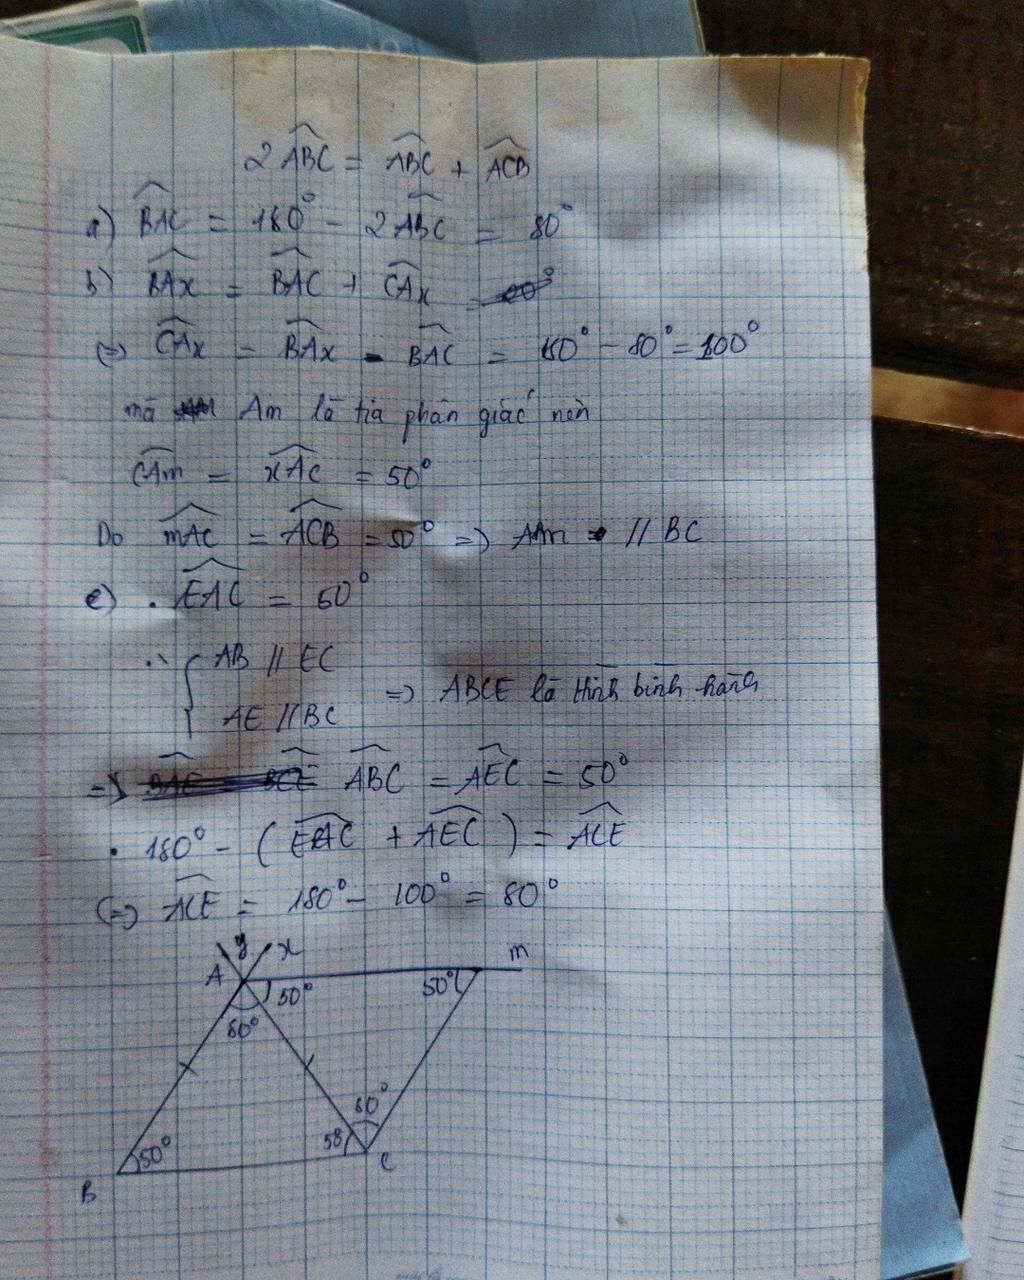 2 ABC = ABC + ACB
a) BAC = 180° - 2 ABC = 80°
b) BAx = BAC + CAx =
(=) CAx = BAx - BAC = 180° - 80° = 100°
mà Am là tia phân giác nên
CAm = xAC = 50°
Do mAC = ACB = 50° => Am // BC
c) . EAC = 50°
AB // EC
=> ABCE là Hình bình hành
AE // BC
=> ABC = AEC = 50°
. 180° - ( EAC + AEC ) = ACE
(=) ACE = 180° - 100° = 80°
y x m
A 50° 50°
80°
80°
50° 50
B C